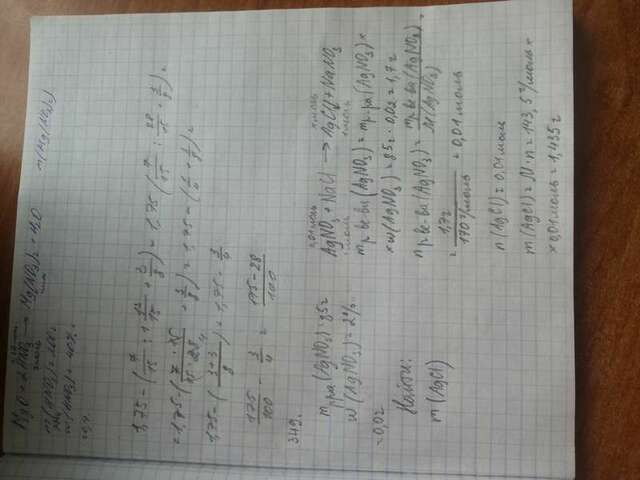 MgO + 2HNO₃ → Mg(NO₃)₂ + H₂O n(Mg(NO₃)₂)
2моль
m(HNO₃) = 200 г
w(HNO₃) = 40% =
= 0,4
1,75 - (7/15 : 1 13/15 + 3/8) = 1,75 (7/15 : 28/15 + 3/8) =
= 1,75 - (7 · 15/15 · 28 4 + 3/8) = 1,75 - (1/4 + 3/8) =
1,75 - (3+3/8) = 1,75 - 3/4
175/100 - 3/4 = 175-28/100
349.
mр-ра(AgNO₃) = 85г
w(AgNO₃) = 2%
= 0,02
Найти:
m(AgCl)
0,01моль x моль
AgNO₃ + NaCl → AgCl↓ + NaNO₃
1моль 1моль
mр.ве-ва(AgNO₃) = mр-ра(AgNO₃) ×
× w(AgNO₃) = 85г · 0,02 = 1,7г
nр.ве-ва(AgNO₃) = mр.ве-ва(AgNO₃)/M(AgNO₃) =
= 1,7г/170г/моль = 0,01моль
n(AgCl) = 0,01моль
m(AgCl) = M · n = 143,5г/моль ×
× 0,01моль = 1,435г